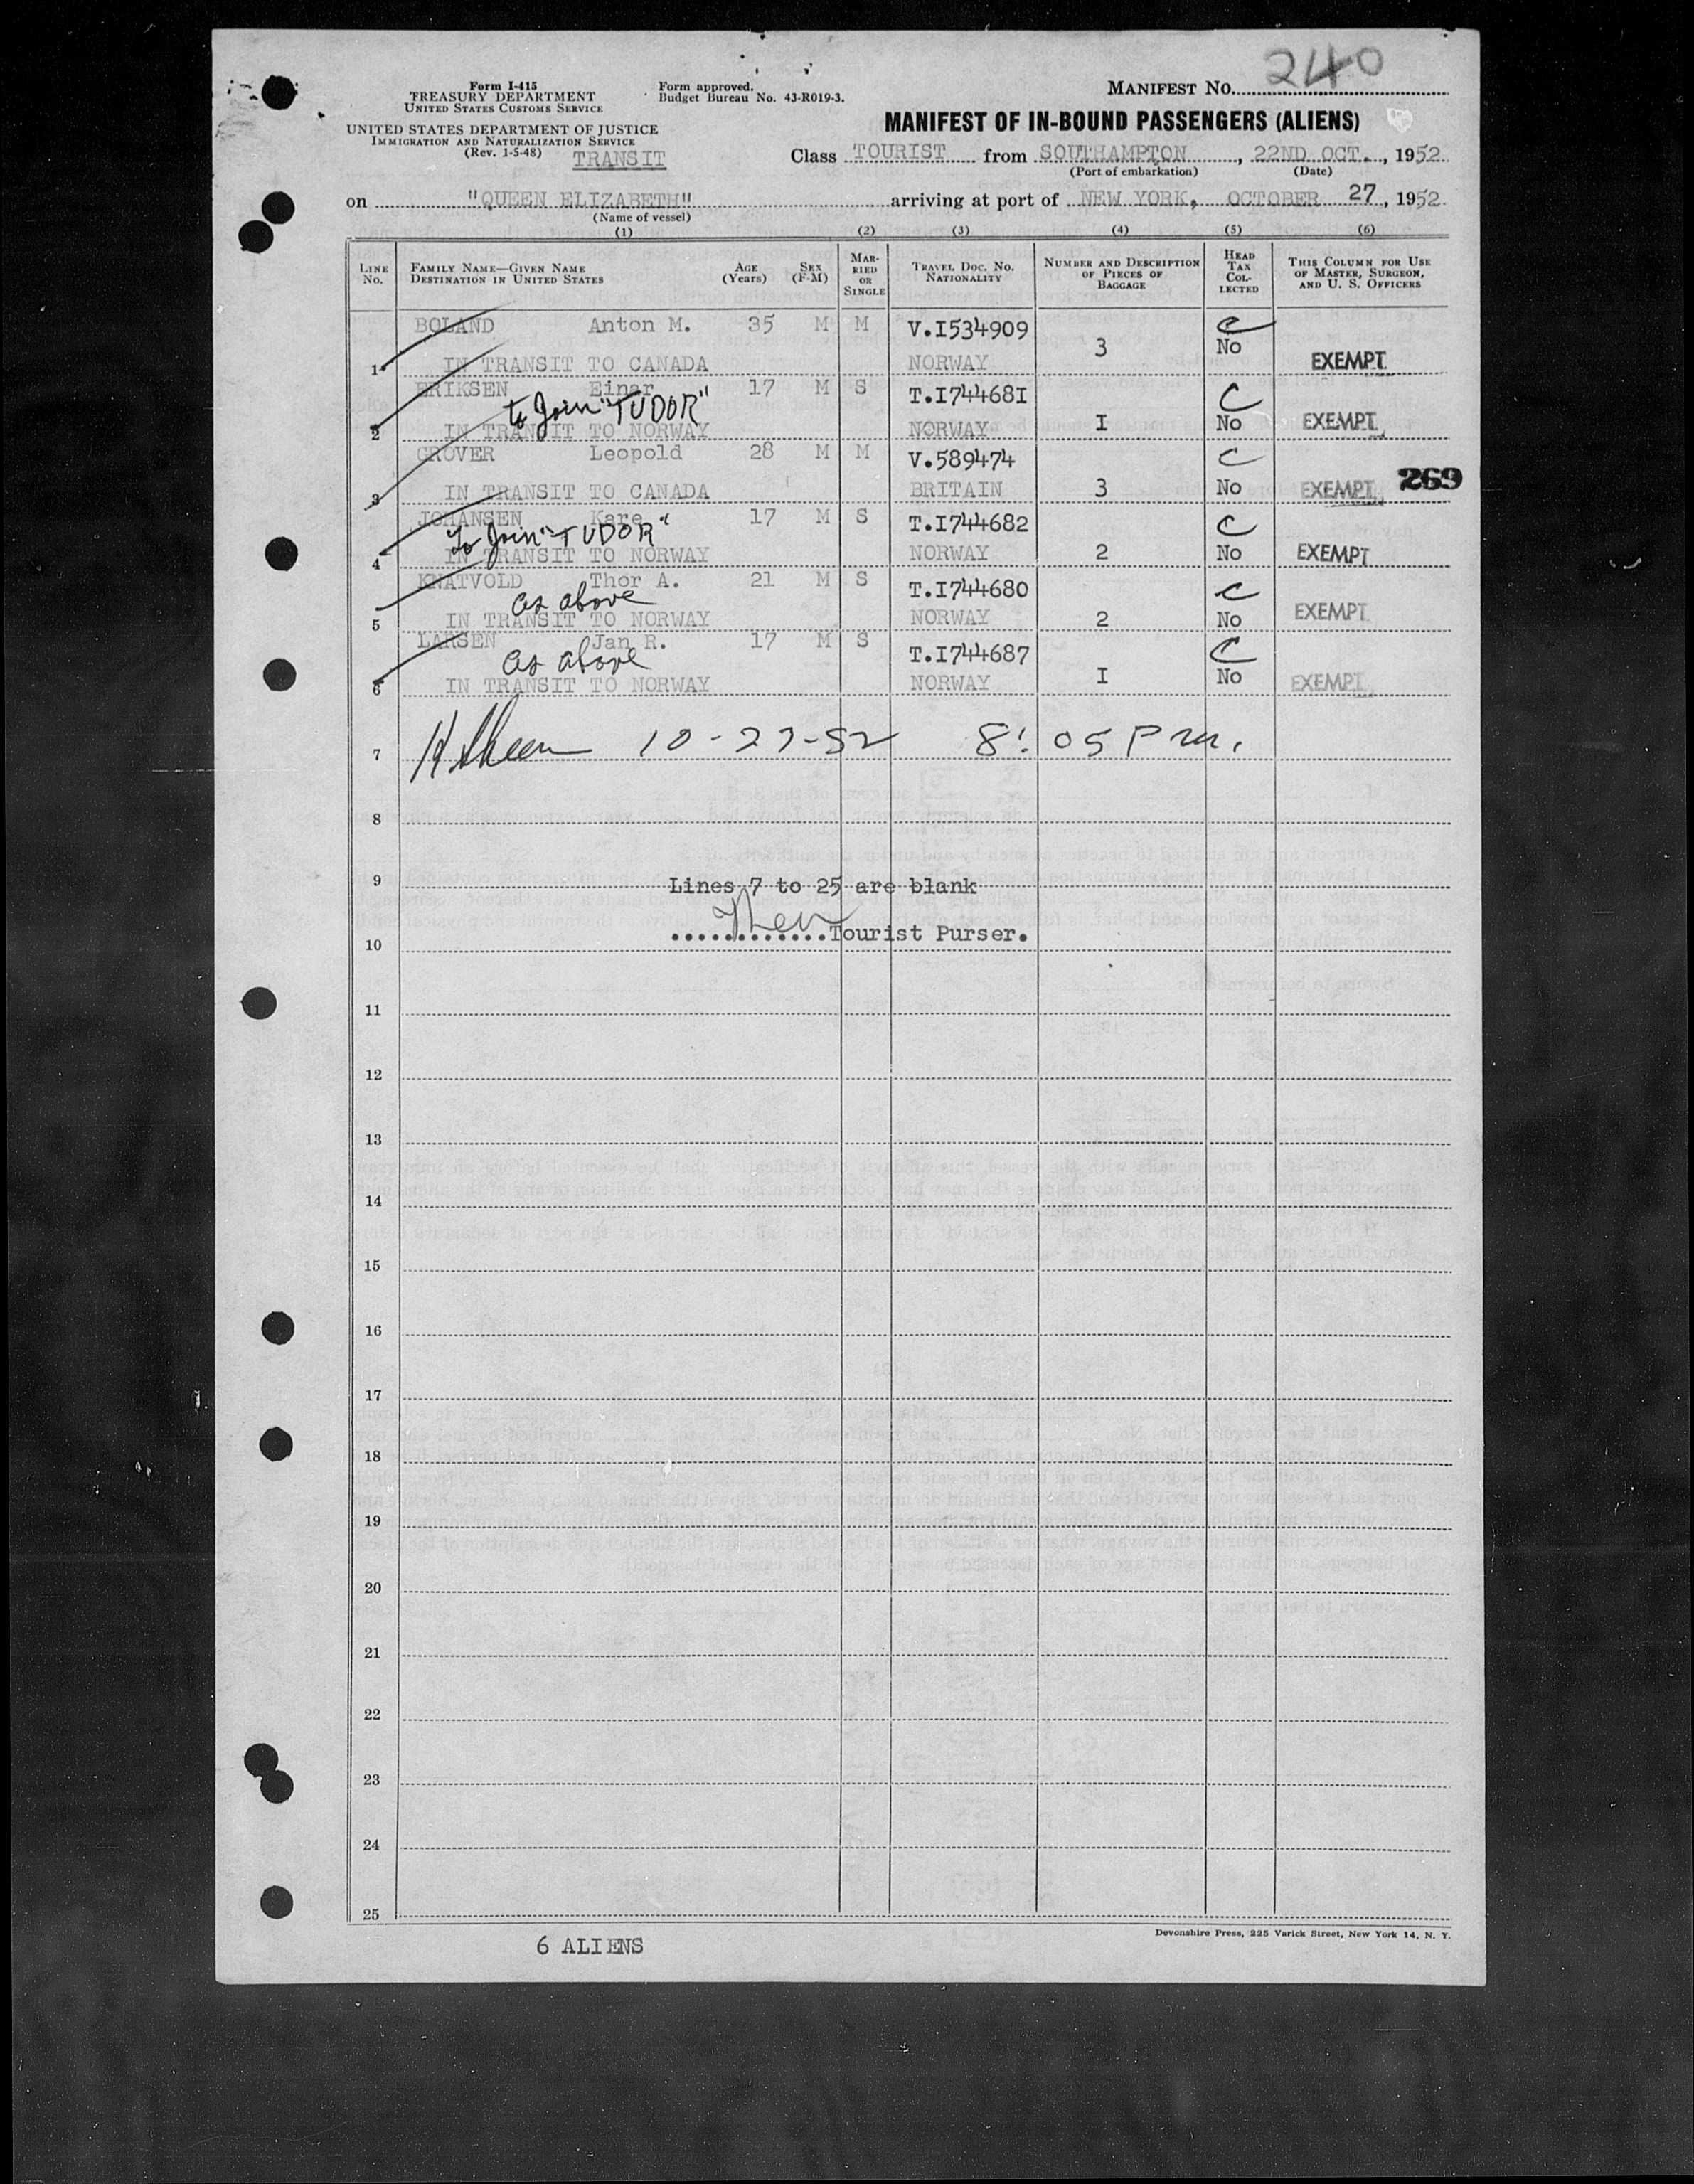 240
Form I-415
TREASURY DEPARTMENT
UNITED STATES CUSTOMS SERVICE
Form approved.
Budget Bureau No. 43-R019-3.
MANIFEST NO.
UNITED STATES DEPARTMENT OF JUSTICE
IMMIGRATION AND NATURALIZATION SERVICE
(Rev. 1-5-48) TRANSIT
MANIFEST OF IN-BOUND PASSENGERS (ALIENS)
Class TOURIST from SOUTHAMPTON, 22ND OCT., 1952
(Port of embarkation) (Date)
on "QUEEN ELIZABETH" arriving at port of NEW YORK, OCTOBER 27, 1952
(Name of vessel)
(1) (2) (3) (4) (5) (6)
LINE NO. FAMILY NAME—GIVEN NAME DESTINATION IN UNITED STATES AGE (Years) SEX (F-M) MARRIED OR SINGLE TRAVEL DOC. NO. NATIONALITY NUMBER AND DESCRIPTION OF PIECES OF BAGGAGE HEAD TAX COLLECTED THIS COLUMN FOR USE OF MASTER, SURGEON, AND U. S. OFFICERS
BOLAND Anton M. 35 M M V.I534909 C
1 IN TRANSIT TO CANADA NORWAY 3 No EXEMPT
ERIKSEN Einar 17 M S T.I744681 C
to Join "TUDOR"
2 IN TRANSIT TO NORWAY NORWAY I No EXEMPT
GROVER Leopold 28 M M V.589474 C
3 IN TRANSIT TO CANADA BRITAIN 3 No EXEMPT 269
JOHANSEN Kare 17 M S T.I744682 C
To Join "TUDOR"
4 IN TRANSIT TO NORWAY NORWAY 2 No EXEMPT
KNATVOLD Thor A. 21 M S T.I744680 C
as above
5 IN TRANSIT TO NORWAY NORWAY 2 No EXEMPT
LARSEN Jan R. 17 M S T.I744687 C
as above
6 IN TRANSIT TO NORWAY NORWAY I No EXEMPT
7 10-27-52 8:05 P m.
8
9 Lines 7 to 25 are blank
10 .............Tourist Purser.
11
12
13
14
15
16
17
18
19
20
21
22
23
24
25
6 ALIENS
Devonshire Press, 225 Varick Street, New York 14, N. Y.